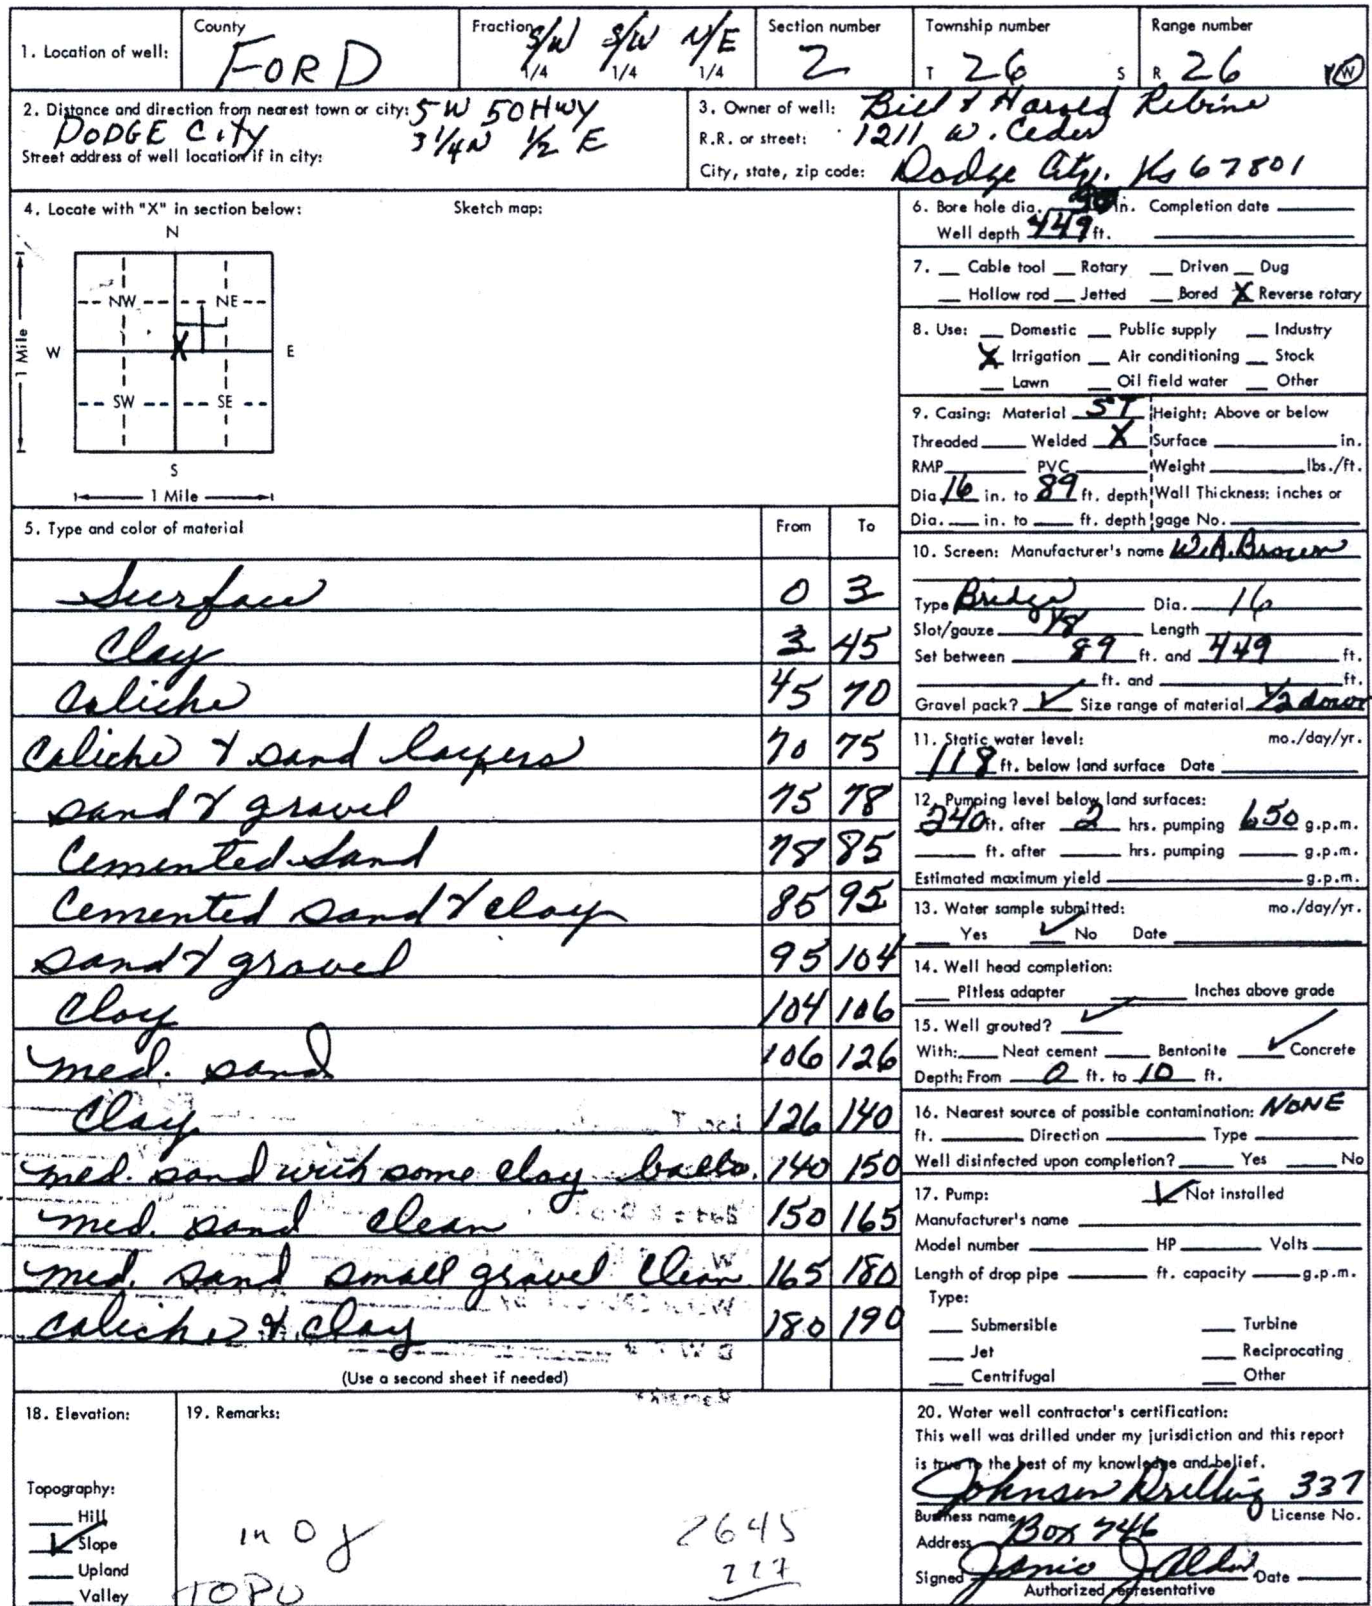 1. Location of well: County FORD Fraction S/W 1/4 S/W 1/4 N/E 1/4 Section number 2 Township number T 26 S Range number R 26 W
2. Distance and direction from nearest town or city: 5W 50 HWY
DODGE CITY 3 1/4 N 1/2 E
Street address of well location if in city:
3. Owner of well: Bill & Harold Rebine
R.R. or street: 1211 W. Ceder
City, state, zip code: Dodge City, Ks 67801
4. Locate with "X" in section below: Sketch map:
N
NW NE
W X E
SW SE
S
1 Mile
1 Mile
5. Type and color of material From To
Surface 0 3
Clay 3 45
Caliche 45 70
Caliche & sand layers 70 75
sand & gravel 75 78
Cemented sand 78 85
Cemented sand & clay 85 95
sand & gravel 95 104
Clay 104 106
med. sand 106 126
Clay 126 140
med. sand with some clay balls. 140 150
med. sand clean 150 165
med. sand small gravel clean 165 180
caliche & clay 180 190
(Use a second sheet if needed)
6. Bore hole dia. in. Completion date
Well depth 449 ft.
7. Cable tool Rotary Driven Dug
Hollow rod Jetted Bored X Reverse rotary
8. Use: Domestic Public supply Industry
X Irrigation Air conditioning Stock
Lawn Oil field water Other
9. Casing: Material ST Height: Above or below
Threaded Welded X Surface in.
RMP PVC Weight lbs./ft.
Dia 16 in. to 89 ft. depth Wall Thickness: inches or
Dia. in. to ft. depth gage No.
10. Screen: Manufacturer's name W.A. Brown
Type Bridge Dia. 16
Slot/gauze 1/8 Length
Set between 89 ft. and 449 ft.
ft. and ft.
Gravel pack? ✓ Size range of material 1/2 down
11. Static water level: mo./day/yr.
118 ft. below land surface Date
12. Pumping level below land surfaces:
240 ft. after 2 hrs. pumping 650 g.p.m.
ft. after hrs. pumping g.p.m.
Estimated maximum yield g.p.m.
13. Water sample submitted: mo./day/yr.
Yes ✓ No Date
14. Well head completion:
Pitless adapter Inches above grade
15. Well grouted? ✓
With: Neat cement Bentonite ✓ Concrete
Depth: From 0 ft. to 10 ft.
16. Nearest source of possible contamination: NONE
ft. Direction Type
Well disinfected upon completion? Yes No
17. Pump: ✓ Not installed
Manufacturer's name
Model number HP Volts
Length of drop pipe ft. capacity g.p.m.
Type:
Submersible Turbine
Jet Reciprocating
Centrifugal Other
18. Elevation:
Topography:
Hill
✓ Slope
Upland
Valley
19. Remarks:
TOPO
2645
20. Water well contractor's certification:
This well was drilled under my jurisdiction and this report
is true to the best of my knowledge and belief.
Johnson Drilling 337
Business name License No.
Address Box 746
Signed Date
Authorized representative